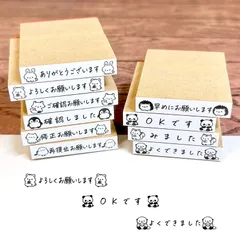 ありがとうございます
よろしくお願いします
ご確認お願いします
確認しました
修正お願いします
再提出お願いします
早めにお願いします
OKです
みました
よくできました
よろしくお願いします
OKです
よくできました